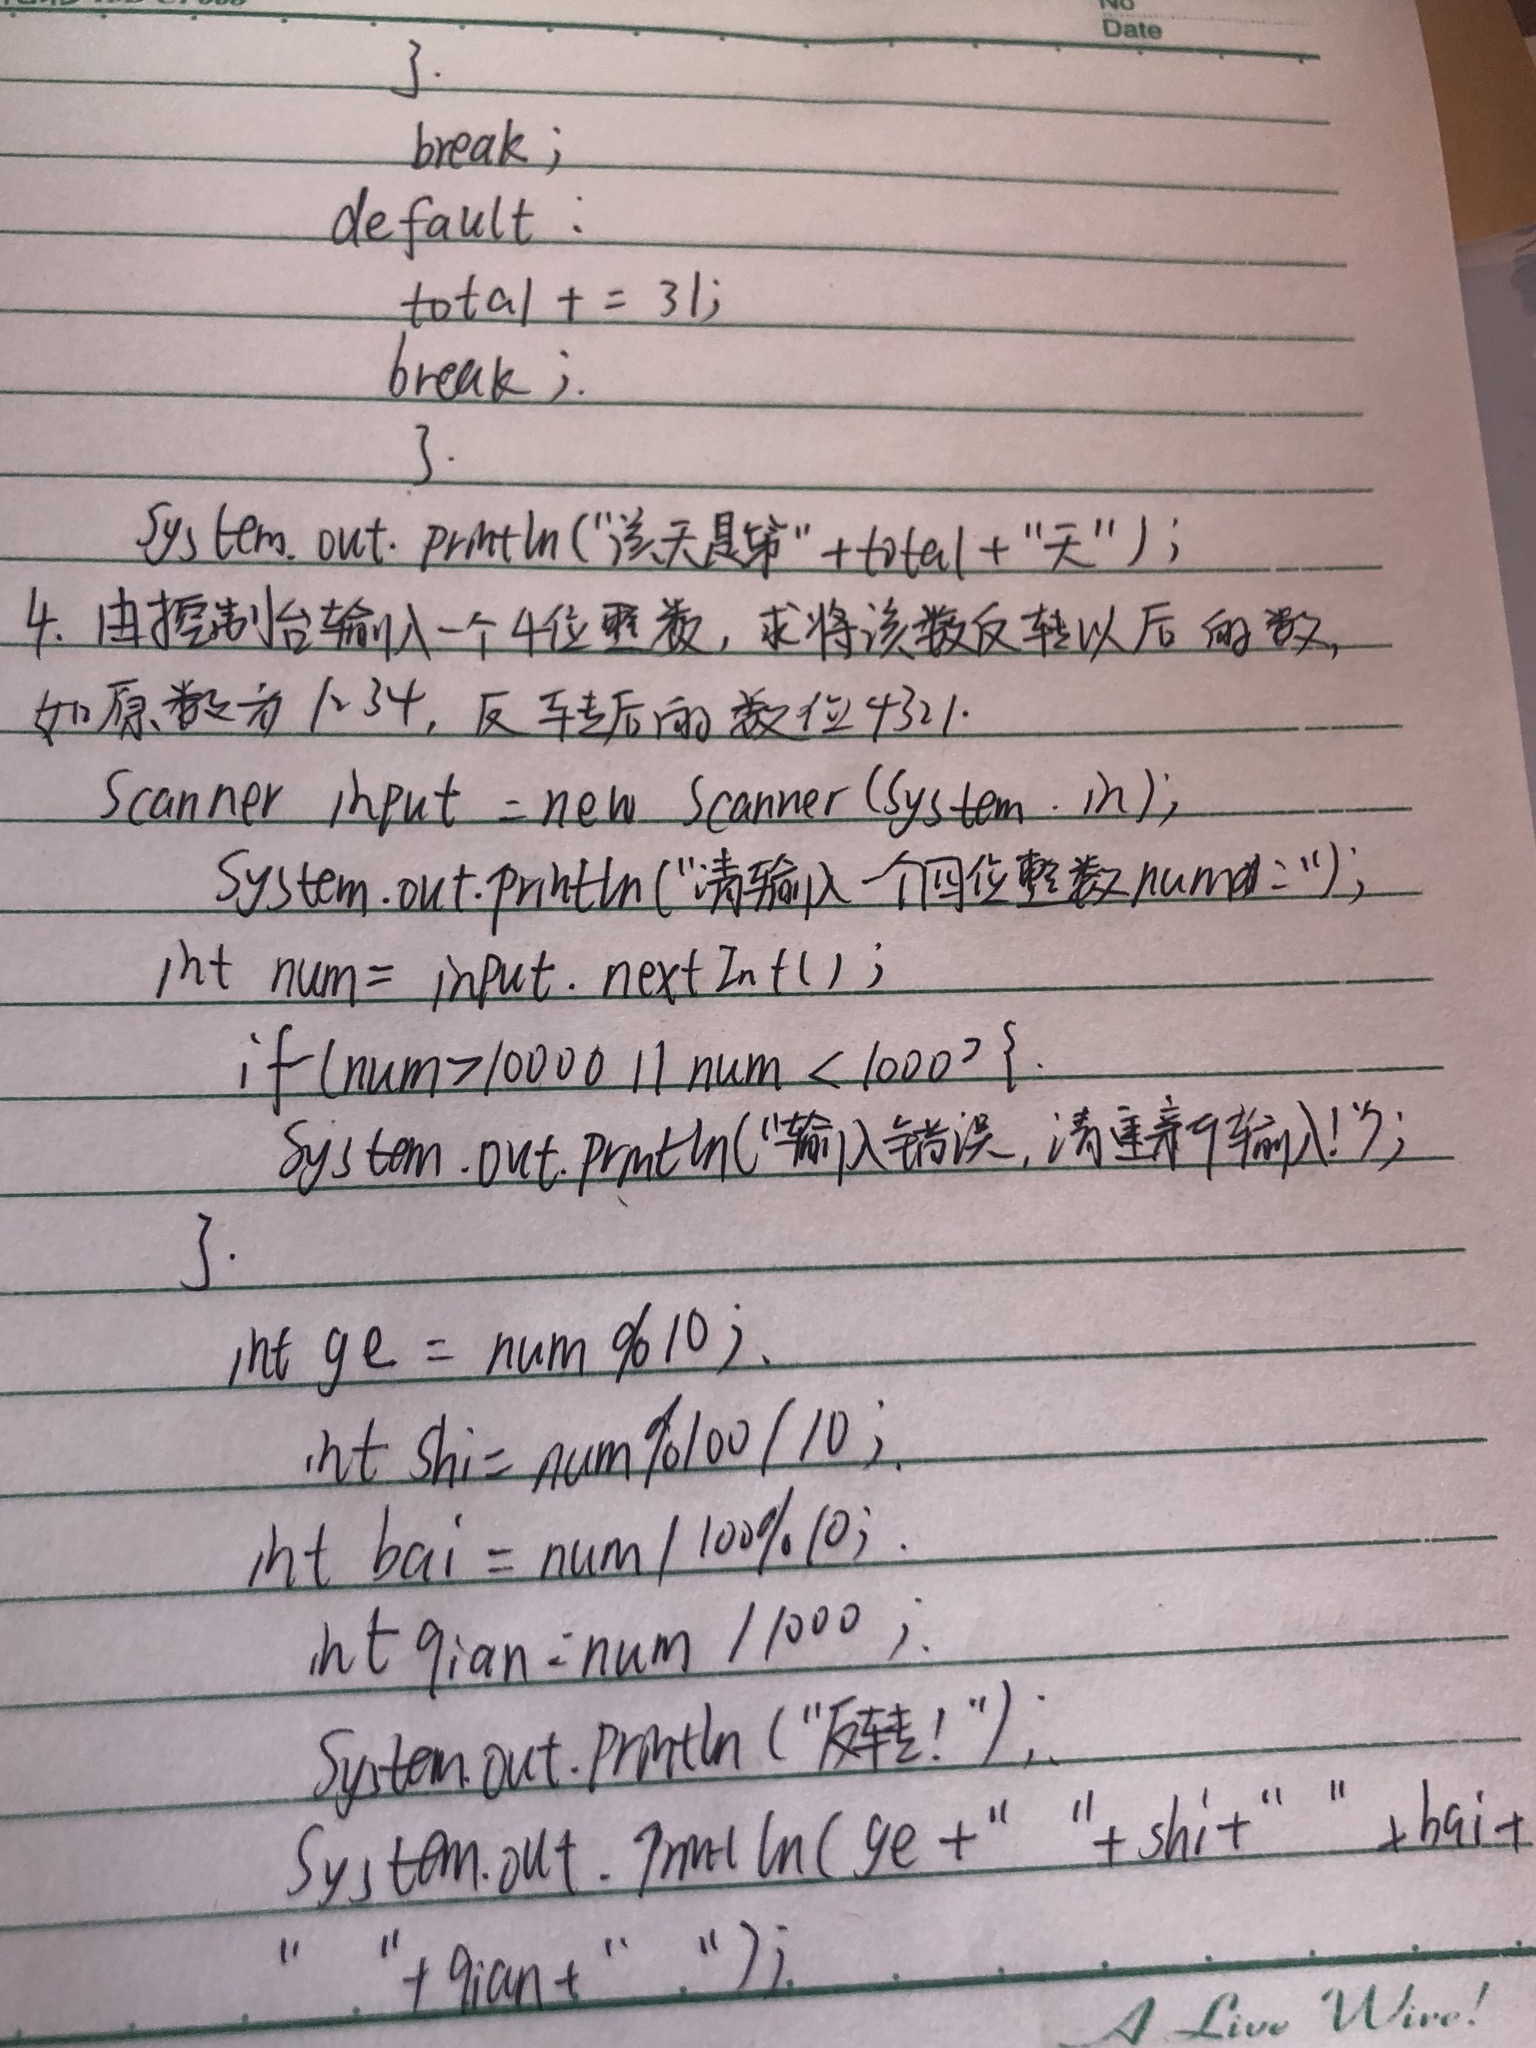 No
Date
}.
break;
default:
total += 31;
break;.
}.
System.out.println("该天是第"+total+"天");
4. 由控制台输入一个4位整数,求将该数反转以后的数,
如原数为1234,反转后的数位4321.
Scanner input = new Scanner(System.in);
System.out.println("请输入一个四位整数num=");
int num = input.nextInt();
if(num>10000 || num < 1000){.
System.out.println("输入错误,请重新输入!");
}.
int ge = num %10;.
int shi = num%100/10;.
int bai = num/100%10;.
int qian = num /1000;.
System.out.println("反转!");.
System.out.println(ge+" "+shi+" "+bai+
" "+qian+" ");
A Live Wire!